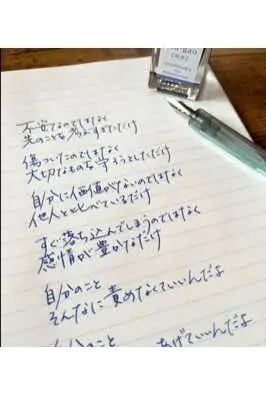 不安なのではなく
先のことを考えすぎただけ
傷ついたのではなく
大切なものを守ろうとしただけ
自分に価値がないのではなく
他人と比べているだけ
すぐ落ち込んでしまうのではなく
感情が豊かなだけ
自分のこと
そんなに責めなくていいんだよ
自分のこと
あげていいんだよ